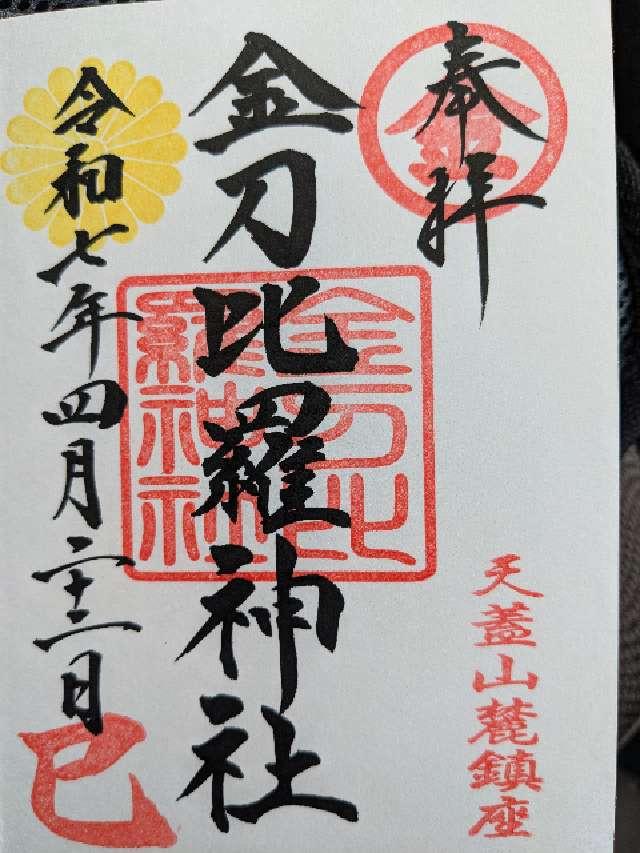 奉拝
天蓋山麓鎮座
金刀比羅神社
金刀比羅神社
令和七年四月二十二日
巳